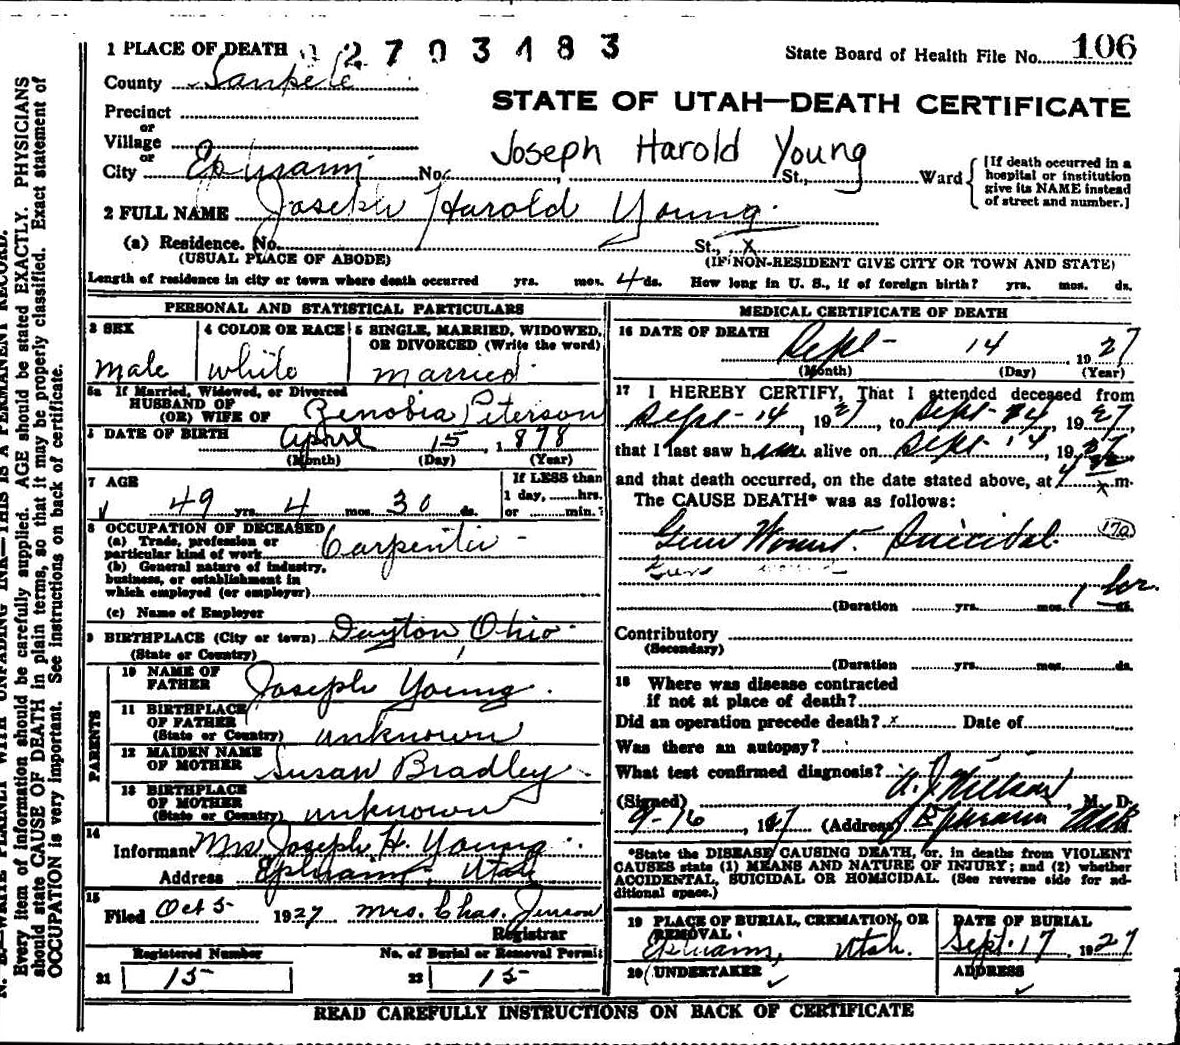 1 PLACE OF DEATH 2703483 State Board of Health File No. 106
County Sanpete
STATE OF UTAH—DEATH CERTIFICATE
Precinct
or
Village
or
Joseph Harold Young
City Ephraim No. , St., Ward
[If death occurred in a
hospital or institution
give its NAME instead
of street and number.]
2 FULL NAME Joseph Harold Young
(a) Residence. No. St., x
(USUAL PLACE OF ABODE) (IF NON-RESIDENT GIVE CITY OR TOWN AND STATE)
Length of residence in city or town where death occurred yrs. mos. 4 ds. How long in U. S., if of foreign birth? yrs. mos. ds.
PERSONAL AND STATISTICAL PARTICULARS
3 SEX 4 COLOR OR RACE 5 SINGLE, MARRIED, WIDOWED,
OR DIVORCED (Write the word)
male white married
5a If Married, Widowed, or Divorced
HUSBAND OF
(OR) WIFE OF Zenobia Peterson
DATE OF BIRTH April 15, 1878
(Month) (Day) (Year)
7 AGE If LESS than
1 day, hrs.
49 yrs. 4 mos. 30 ds. or min.?
8 OCCUPATION OF DECEASED
(a) Trade, profession or
particular kind of work Carpenter
(b) General nature of industry,
business, or establishment in
which employed (or employer)
(c) Name of Employer
9 BIRTHPLACE (City or town) Dayton, Ohio
(State or Country)
PARENTS
10 NAME OF
FATHER Joseph Young
11 BIRTHPLACE
OF FATHER
(State or Country) unknown
12 MAIDEN NAME
OF MOTHER Susan Bradley
13 BIRTHPLACE
OF MOTHER
(State or Country) unknown
14
Informant Mrs Joseph H. Young
Address Ephraim, Utah
15
Filed Oct 5 1927 Mrs. Chas. Jenson
Registrar
Registered Number No. of Burial or Removal Permit
21 15 22 15
MEDICAL CERTIFICATE OF DEATH
16 DATE OF DEATH
Sept- 14 1927
(Month) (Day) (Year)
17 I HEREBY CERTIFY, That I attended deceased from
Sept-14, 1927, to Sept-14, 1927,
that I last saw him alive on Sept-14, 19
and that death occurred, on the date stated above, at 4 m.
The CAUSE DEATH* was as follows:
Gun Wound. Suicidal 170
Gun
1 hr.
(Duration yrs. mos. ds.
Contributory
(Secondary)
(Duration yrs. mos. ds.
18 Where was disease contracted
if not at place of death?
Did an operation precede death? x Date of
Was there an autopsy?
What test confirmed diagnosis?
(Signed) M. D.
9-16, 1927 (Address Ephraim Utah
*State the DISEASE CAUSING DEATH, or, in deaths from VIOLENT
CAUSES state (1) MEANS AND NATURE OF INJURY; and (2) whether
ACCIDENTAL, SUICIDAL OR HOMICIDAL. (See reverse side for ad-
ditional space.)
19 PLACE OF BURIAL, CREMATION, OR
REMOVAL DATE OF BURIAL
Ephraim, Utah. Sept. 17 1927
20 UNDERTAKER ADDRESS
READ CAREFULLY INSTRUCTIONS ON BACK OF CERTIFICATE
N. B.—WRITE PLAINLY WITH UNFADING INK—THIS IS A PERMANENT RECORD.
Every item of information should be carefully supplied. AGE should be stated EXACTLY. PHYSICIANS
should state CAUSE OF DEATH in plain terms, so that it may be properly classified. Exact statement of
OCCUPATION is very important. See instructions on back of certificate.